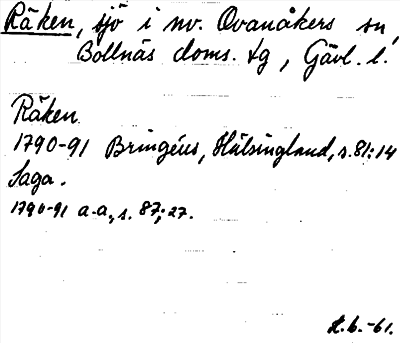 Räken, sjö i nv. Ovanåkers sn,
Bollnäs doms. tg, Gävl. l.
Räken
1790-91 Bringéus, Hälsingland, s. 81:14
Saga.
1790-91 a.a., s. 87:27.
H.b.-61.